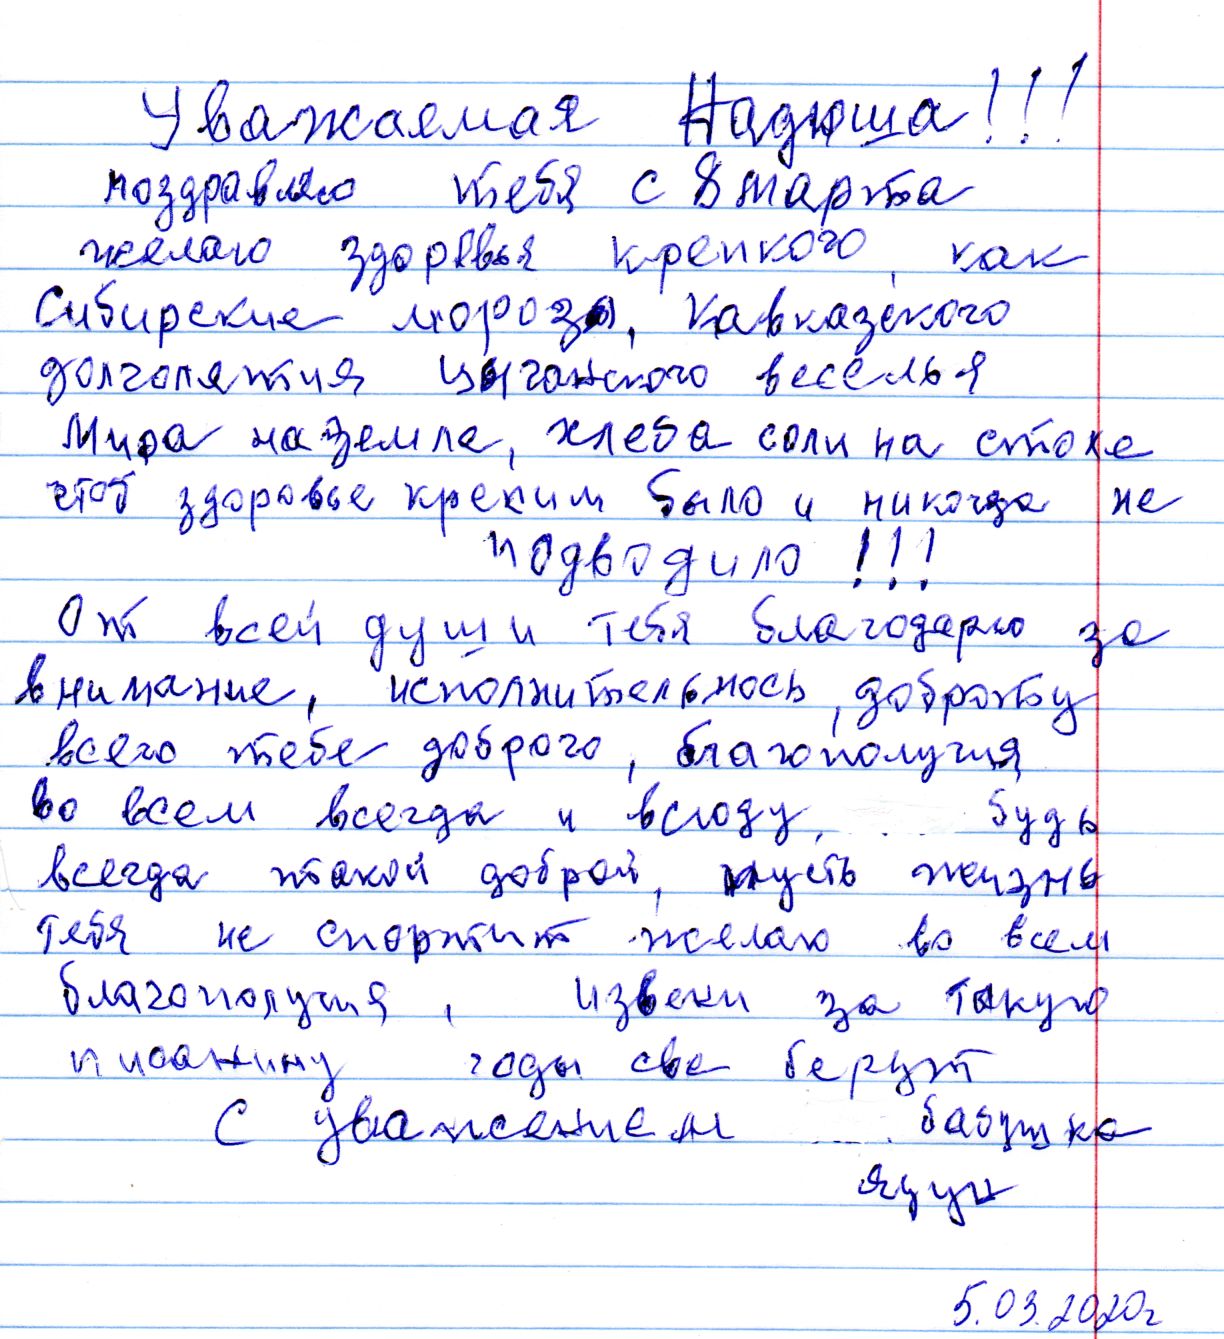 Уважаемая Надюша!!!
поздравляю тебя с 8 марта
желаю здоровья крепкого, как
Сибирские морозы, Кавказского
долголетия цыганского веселья
Мира на земле, хлеба соли на столе
чтоб здоровье крепким было и никогда не
подводило!!!
От всей души тебя благодарю за
внимание, исполнительнось, доброту
всего тебе доброго, благополучия
во всем всегда и всюду, будь
всегда такой доброй, пусть жизнь
тебя не спортит желаю во всем
благополучия, извени за такую
писанину годы све берут
С уважением бабушка
Яцун
5.03.2020г